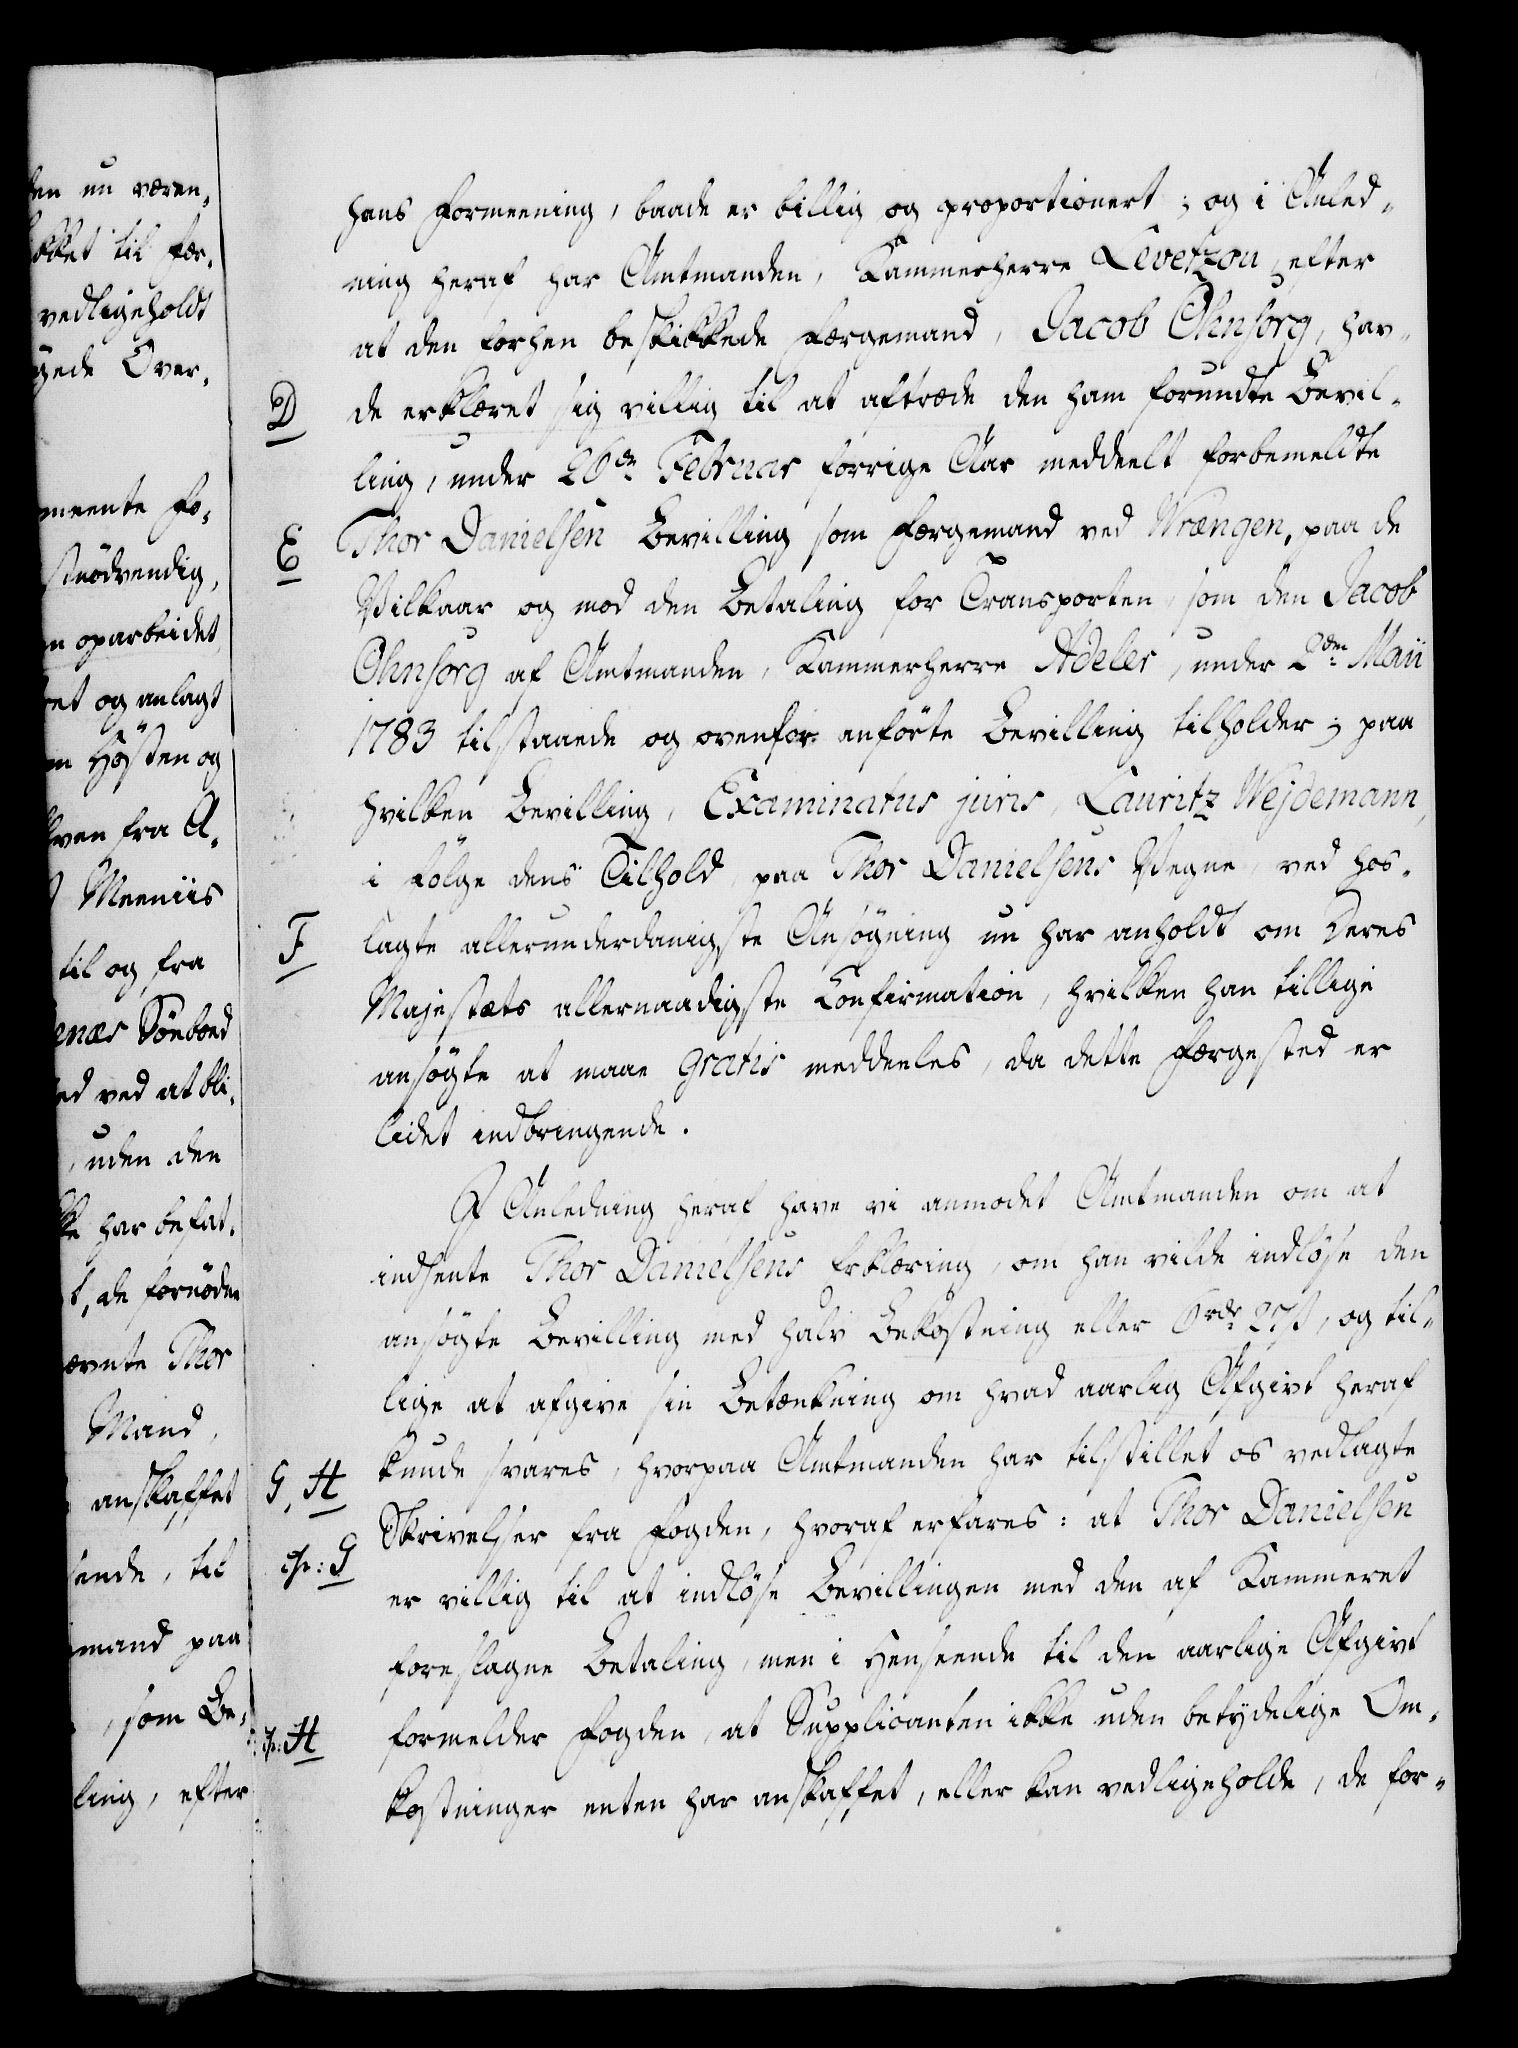 den nu væren,
kket til Fær,
vedligeholdt
gede Over,
meente fo,
stnödvendig,
en oparbeidet,
ret og anlagt
om Hösten og
lven fra A,
Meeniis
til og fra
enæs Söeboed
ed ved at bli,
, uden den
kke har befat,
t, de fornödne
ævnte Thor
Mand,
anskaffet
ende, til
mand paa
, som Be,
ling, efter
hans Formeening, baade er billig og proportioneret; og i Anled,
ning heraf har Amtmanden, Kammerherre Levetzou, efter
at den forhen beskikkede Færgemand, Jacob Ohnsorg, hav,
D de erklæret sig villig til at aftræde den ham forundte Bevil,
ling, under 26de Februar forrige Aar meddeelt forbemeldte
E Thor Danielsen Bevilling som Færgemand ved Wrængen, paa de
Vilkaar og mod den Betaling for Transporten, som den Jacob
Ohnsorg af Amtmanden, Kammerherre Adeler, under 2den Maii
1783 tilstaaede og ovenfor anförte Bevilling tilholder; paa
hvilken Bevilling, Examinatus juris, Lauritz Wejdemann,
i Fölge dens Tilhold, paa Thor Danielsens Vegne, ved hos,
F lagte allerunderdanigste Ansögning nu har anholdt om Deres
Majestæts allernaadigste Confirmation, hvilken han tillige
ansögte at maae gratis meddeeles, da dette Færgested er
lidet indbringende.
I Anledning heraf have vi anmodet Amtmanden om at
indhente Thor Danielsens Erklæring, om han vilde indlöse den
ansögte Bevilling med halv Bekostning eller 6 rdr 27 s, og til,
lige at afgive sin Betænkning om hvad aarlig Afgivt heraf
kunde svares, hvorpaa Amtmanden har tilstillet os vedlagte
G, H Skrivelser fra Fogden, hvoraf erfares: at Thor Danielsen
cfr: G er villig til at indlöse Bevillingen med den af Kammeret
foreslagne Betaling, men i Henseende til den aarlige Afgivt
cfr: H formelder Fogden, at Supplicanten ikke uden betydelige Om,
kostninger enten har anskaffet, eller kan vedligeholde, de for,